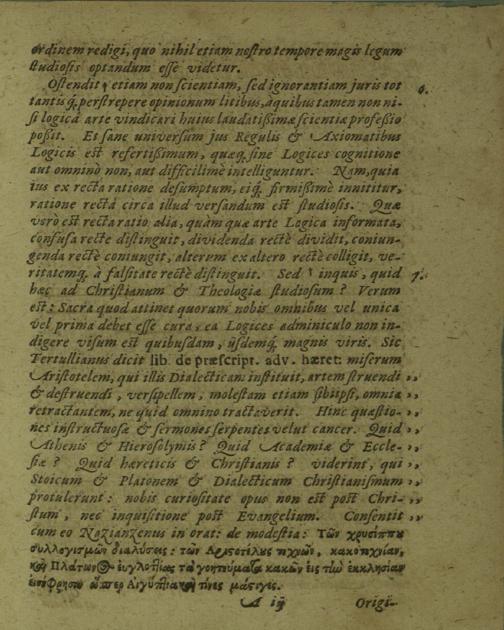 ordinem redigi, quo nihil etiam nostro tempore magis legum
studiosis optandum esse videtur.
Ostendit etiam non scientiam, sed ignorantiam juris tot 6.
tantisq́, perstrepere opinionum litibus, à quibus tamen non ni-
si logica arte vindicari huius laudatißimæ scientiæ professio
poßit. Et sanè universum jus Regulis & Axiomatibus
Logicis est refertißimum, quæq́, sine Logices cognitione
aut omninò non, aut difficilimè intelliguntur. Nam, quia
ius ex recta ratione desumptum, eiq́, firmißimè innititur,
ratione rectâ circa illud versandum est studiosis. Quæ
verò est recta ratio alia, quàm quæ arte Logica informata,
confusa rectè distinguit, dividenda rectè dividit, coniun-
genda rectè coniungit, alterum ex altero rectè colligit, ve-
ritatemq́, à falsitate rectè distinguit. Sed inquis, quid 7.
hæc ad Christianum & Theologiæ studiosum? Verum
est: Sacra quod attinet quorum nobis omnibus vel unica
vel prima debet esse cura, ea Logices adminiculo non in-
digere visum est quibusdam, iisdemq́, magnis viris. Sic
Tertullianus dicit lib. de præscript. adv. hæret: miserum
Aristotelem, qui illis Dialecticam instituit, artem struendi ,,
& destruendi, versipellem, molestam etiam sibiipsi, omnia ,,
retractantem, ne quid omnino tractaverit. Hinc quæstio- ,,
nes infructuosæ & sermones serpentes velut cancer. Quid ,,
Athenis & Hierosolymis? Quid Academiæ & Eccle- ,,
siæ? Quid hæreticis & Christianis? viderint, qui ,,
Stoicum & Platonem & Dialecticum Christianismum ,,
protulerunt: nobis curiositate opus non est post Chri- ,,
stum, nec inquisitione post Evangelium. Consentit ,,
cum eo Nazianzenus in orat: de modestia: Τῶν χρυσίππου
συλλογισμῶν διαλύσεις: τῶν Αριστοτέλους τεχνῶν, κακοτεχνίαν,
καὶ Πλάτωνος εὐγλωττίας τὰ γοητεύματα κακῶν εἰς τὴν ἐκκλησίαν
εἰσέφρησαν ὥσπερ Αἰγυπτιακαὶ τινες μάστιγες.
A iij Origi-